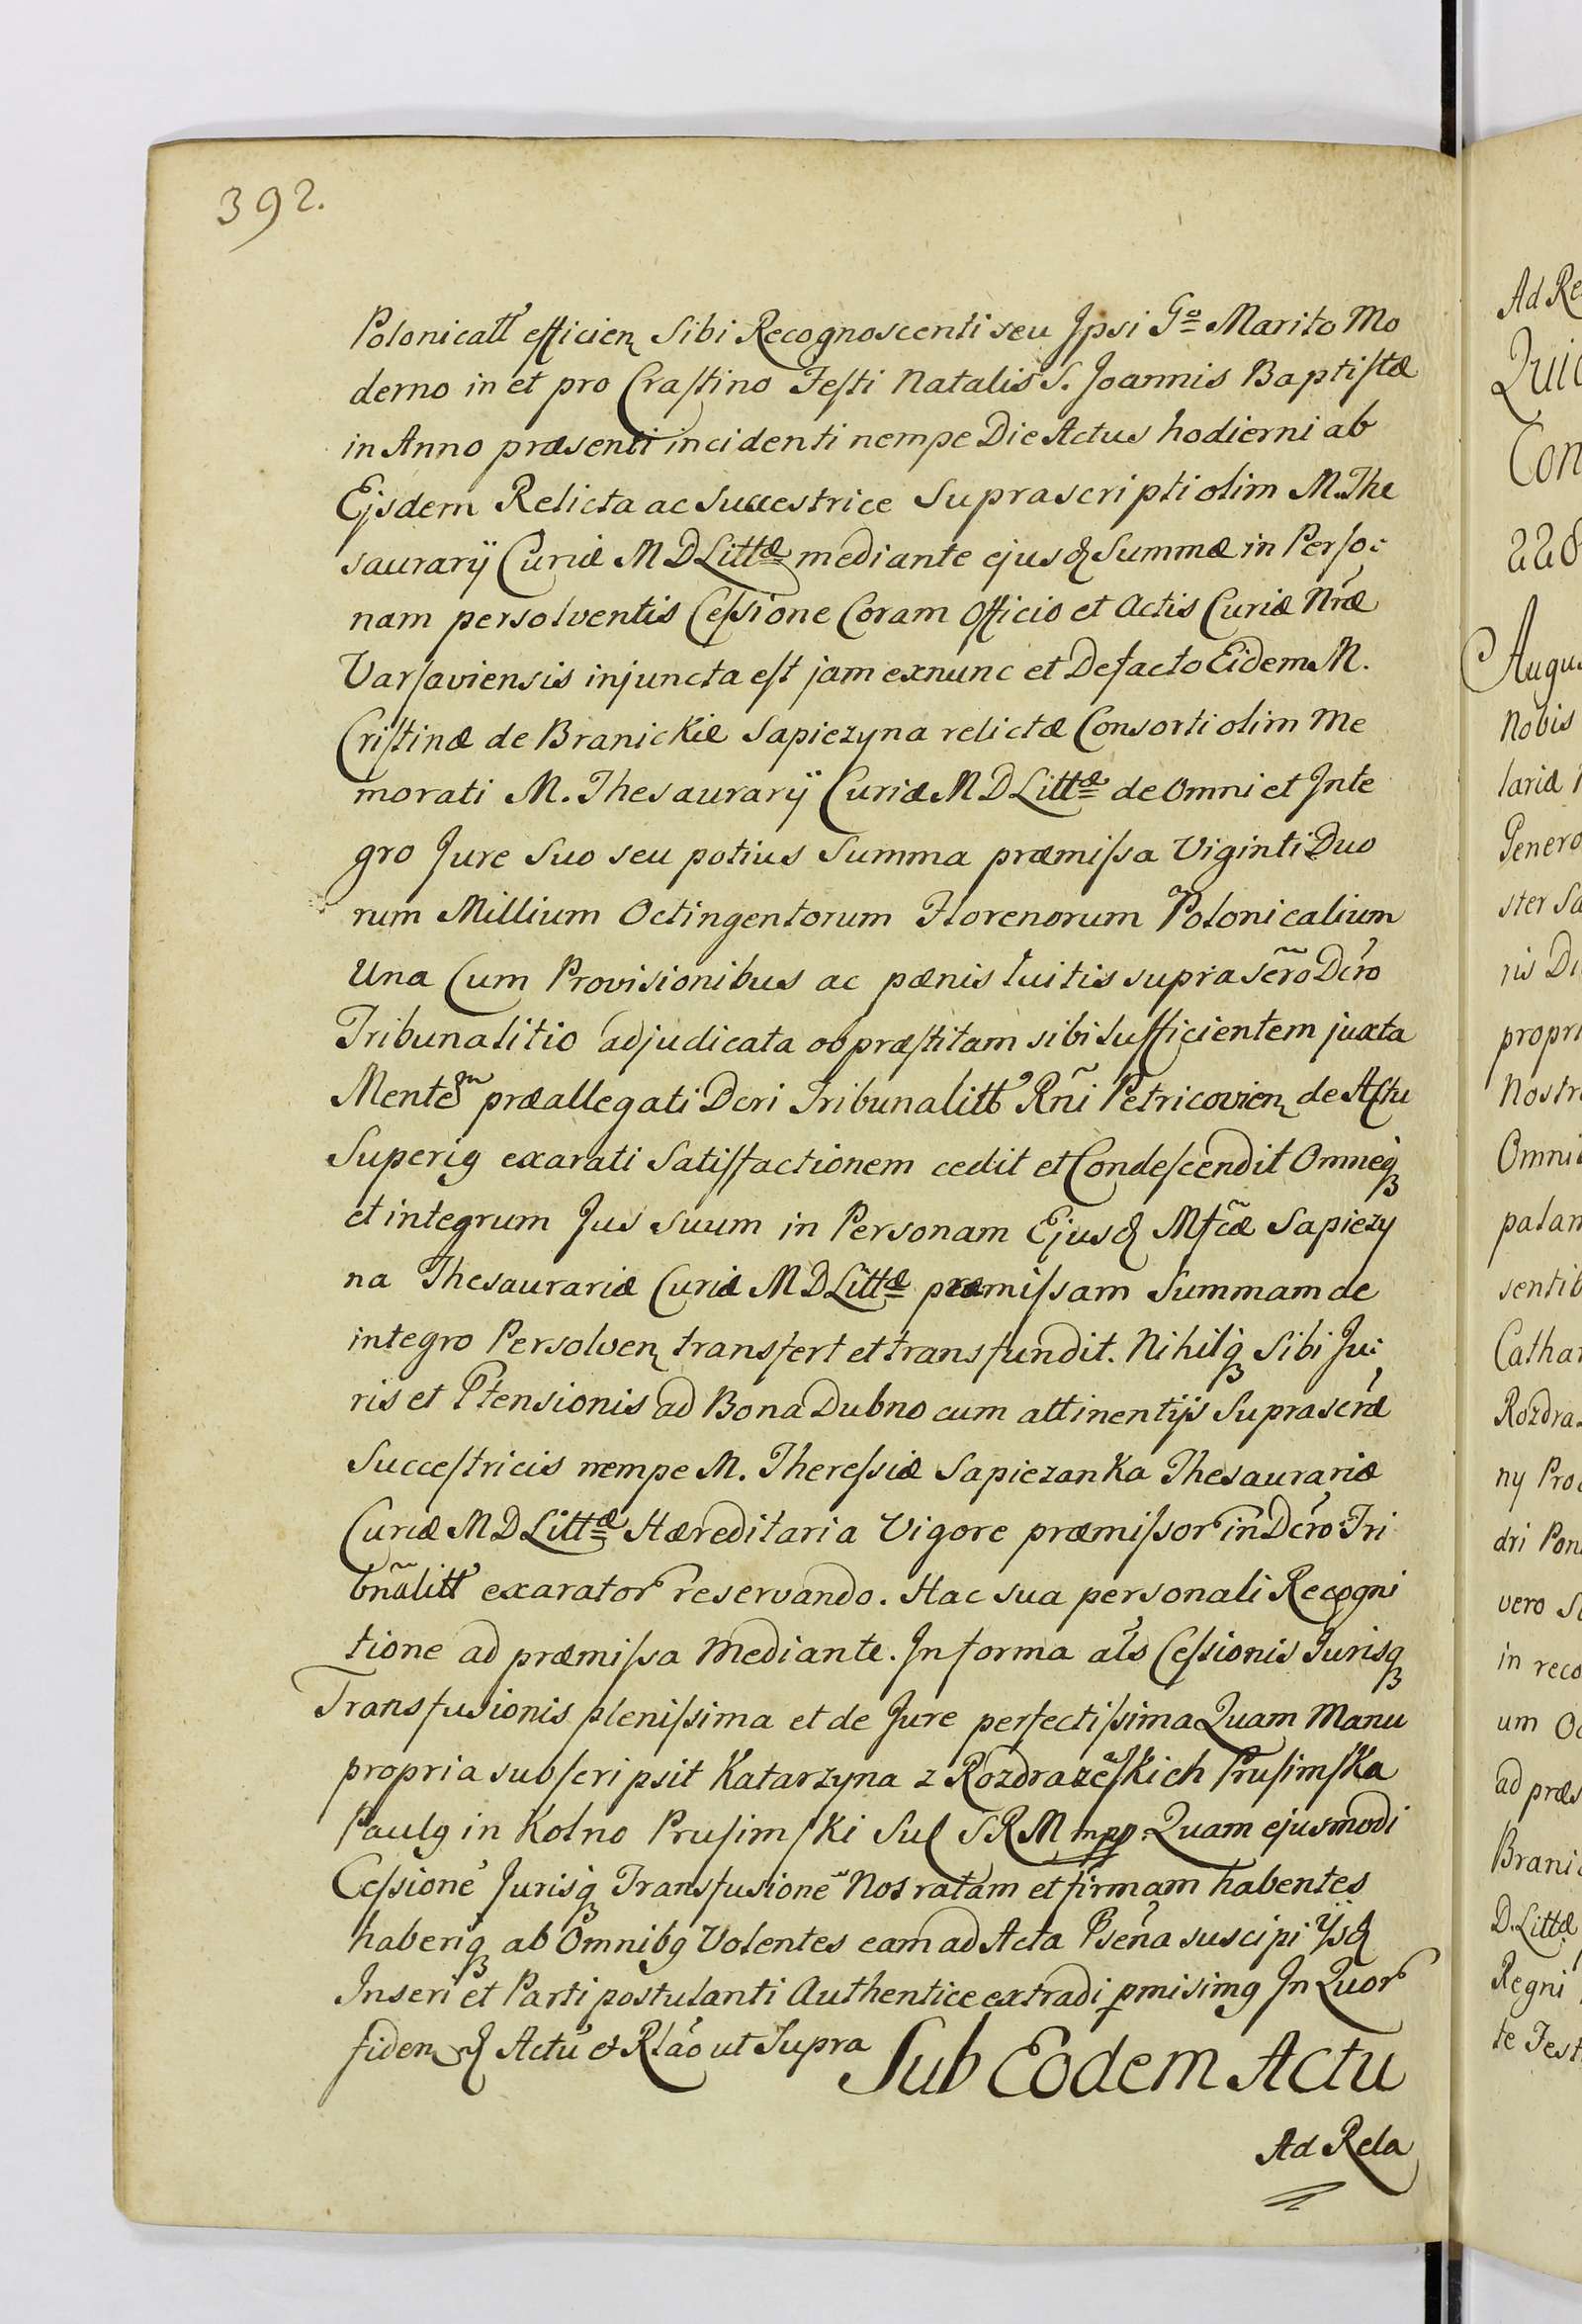 392.
Polonicall efficien Sibi Recognoscenti seu Ipsi Go Marito Mo
derno in et pro Crastino Festi Natalis S. Joannis Baptistæ
in Anno præsenti incidenti nempe Die Actus hodierni ab
Ejsdem Relicta ac Succestrice Suprascripti olim M. The
saurarij Curiæ M D Littæ mediante ejusq Summæ in Perso:
nam persolventis Cessione Coram Officio et Actis Curiæ Nræ
Varsaviensis injuncta est jam exnunc et Defacto Eidem M.
Cristinæ de Branickie Sapiezyna relictæ Consorti olim Me
morati M. Thesaurarij Curiæ M D Littæ de Omni et Inte
gro Jure Suo seu potius Summa præmissa Viginti Duo
rum Millium Octingentorum Florenorum Polonicalium
Una Cum Provisionibus ac pænis luitis supra scro Dcro
Tribunalitio adjudicata ob præstitam sibi Sufficientem juxta
Mentem præallegati Dcri Tribunalitt Rñi Petricovien de Actu
Superiq exarati Satisfactionem cedit et Condescendit Omneq
et integrum Jus Suum in Personam Ejusq Mfcæ Sapiezy
na Thesaurariæ Curiæ M D Littæ præmissam Summam de
integro Persolven transfert et transfundit. Nihilq Sibi Ju:
ris et Ptensionis ad Bona Dubno cum attinentijs Suprascræ
Succestricis nempe M. Theressiæ Sapiezanka Thesaurariæ
Curiæ M D Littæ Hæreditaria Vigore præmissor in Dcro Tri
bnalitt exarator reservando. Hac sua personali Recogni
tione ad præmissa Mediante. In forma als Cessionis Jurisq
Transfusionis plenissima et de Jure perfectissima Quam Manu
propria subscripsit Katarzyna z Rozdrazeskich Prusimska
Paulq in Kolno Prusimski Sul S R M mpp. Quam ejusmodi
Cessione Jurisq Transfusione Nos ratam et firmam habentes
haberiq ab Omnibq Volentes eam ad Acta Psena suscipi ijsq
Inseri et Parti postulanti Authentice extradi pmisimq In Quor
fidem q Actu et Rlao ut Supra
Sub Eodem Actu
Ad Rela
Ad Re
Quic
Con
228
Augu
Nobis
lariæ
Genero
ster Sa
propri
Nostr
Omni
palam
sentib
Cathar
Rozdra
ny Pro
dri Pon
vero
in reco
um
ad præs
Brani
D. Littæ
Regni
te Fest